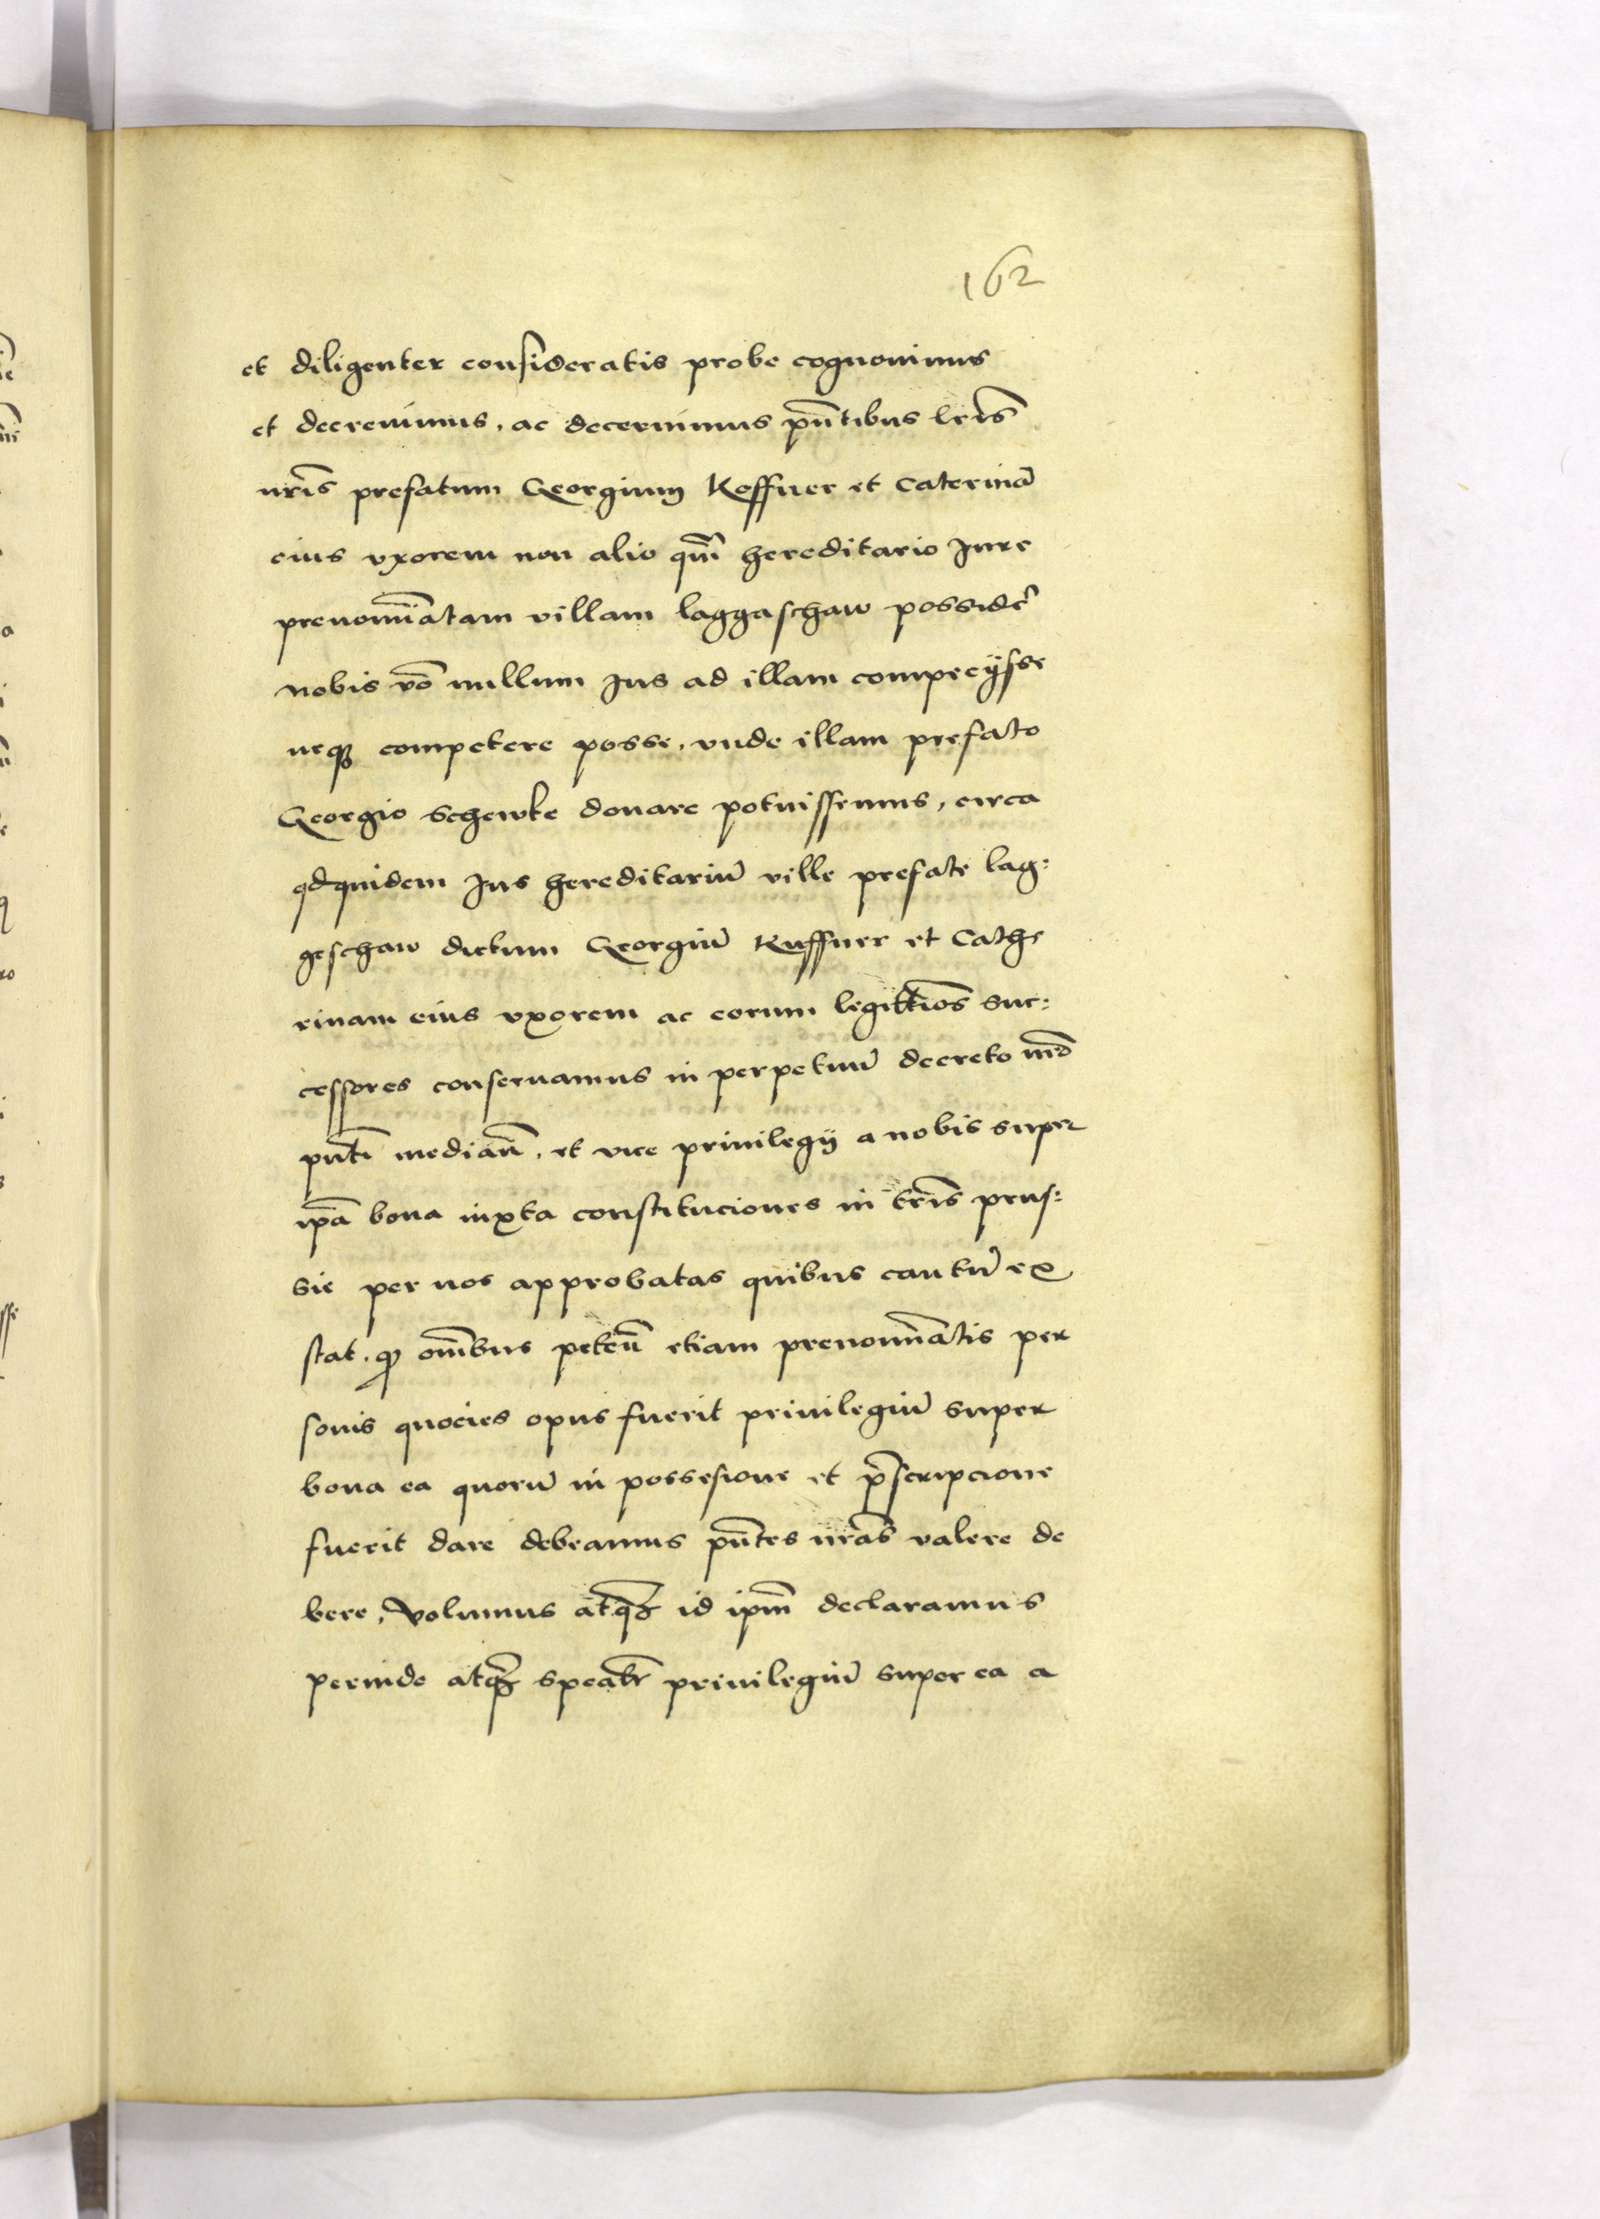 162
et diligenter consideratis probe cognouimus
et decreuimus, ac decernimus pn̄tibus lr̄is
nr̄is prefatum Georgium Keffner et Caterinā
eius vxorem non alio qm̄ hereditario Jure
prenoīatam villam laggaschaw possider̄
nobis vō nullum Jus ad illam compecÿsse
neqȝ competere posse, vnde illam prefato
Georgio Schewke donare potuissemus, circa
qd quidem Jus hereditariū ville prefate lag:
geschaw dictum Georgiū Kuffner et Cathe
rinam eius vxorem ac eorum legittīos suc:
cessores conseruamus in perpetuū decreto nr̄o
pn̄ti median̄, et vice priuilegÿ a nobis super
ip̄a bona iuxta constituciones in tr̄is prus:
sie per nos approbatas quibus cautū ex
stat, qȝ om̄ibus peteñ etiam prenoīatis per
sonis quocies opus fuerit priuilegiū super
bona ea quorū in possesione et p̄scripcione
fuerit dare debeamus pn̄tes nr̄as valere de
bere, volumus atqȝ id ip̄m declaramus
perinde atqȝ speal̄r priuilegiū super ea a